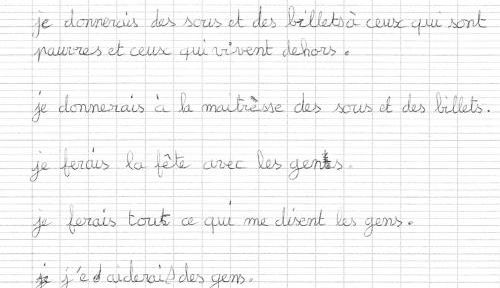 je donnerais des sous et des billets à ceux qui sont
pauvres et ceux qui vivent dehors.
je donnerais à la maitrèsse des sous et des billets.
je ferais la fête avec les gens.
je ferais tout ce qui me disent les gens.
je j'e d'aiderai des gens.